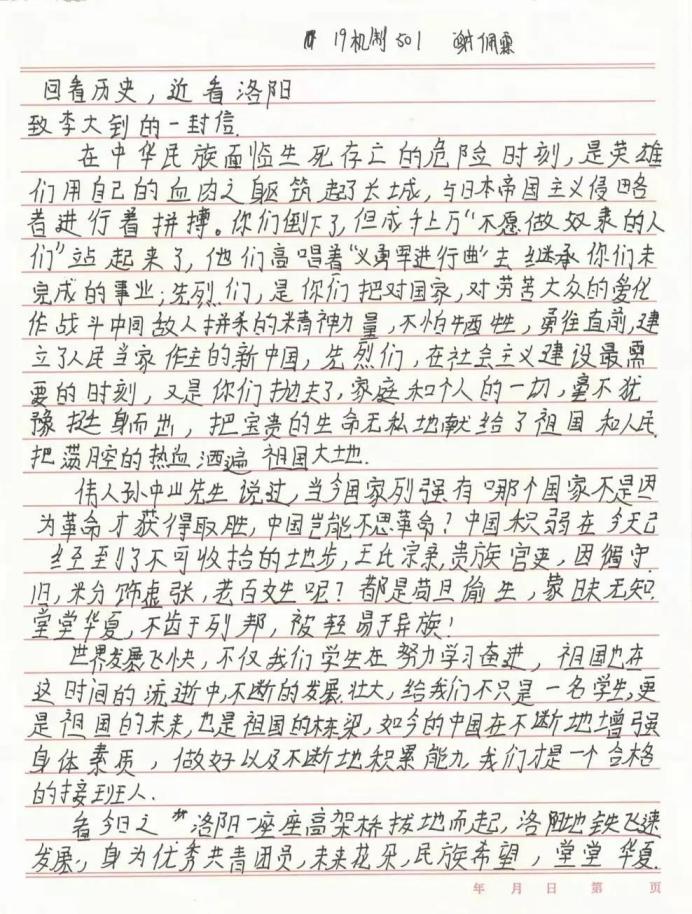 19机制501 谢佩霖
回看历史，近看洛阳
致李大钊的一封信.
在中华民族面临生死存亡的危险时刻，是英雄
们用自己的血肉之躯筑起了长城，与日本帝国主义侵略
者进行着拼搏。你们倒下了，但成千上万"不愿做奴隶的人
们"站起来了，他们高唱着"义勇军进行曲"去继承你们未
完成的事业；先烈们，是你们把对国家，对劳苦大众的爱化
作战斗中同敌人拼杀的精神力量，不怕牺牲，勇往直前，建
立了人民当家作主的新中国，先烈们，在社会主义建设最需
要的时刻，又是你们抛去了，家庭和个人的一切，毫不犹
豫挺身而出，把宝贵的生命无私地献给了祖国和人民.
把满腔的热血洒遍祖国大地.
伟人孙中山先生说过，当今国家列强有哪个国家不是因
为革命才获得取胜，中国岂能不思革命？中国积弱在今天已
经至到了不可收拾的地步，王氏宗亲，贵族官吏，因循守
旧，粉饰虚张，老百姓呢？都是苟且偷生，蒙昧无知.
堂堂华夏，不齿于列邦，被轻易于异族！
世界发展飞快，不仅我们学生在努力学习奋进，祖国也在
这时间的流逝中，不断的发展.壮大，给我们不只是一名学生，更
是祖国的未来，也是祖国的栋梁，如今的中国在不断地增强
身体素质，做好以及不断地积累能力，我们才是一个合格
的接班人.
看今日之洛阳一座座高架桥拔地而起，洛阳地铁飞速
发展，身为优秀共青团员，未来花朵，民族希望，堂堂华夏.
年 月 日 第 页